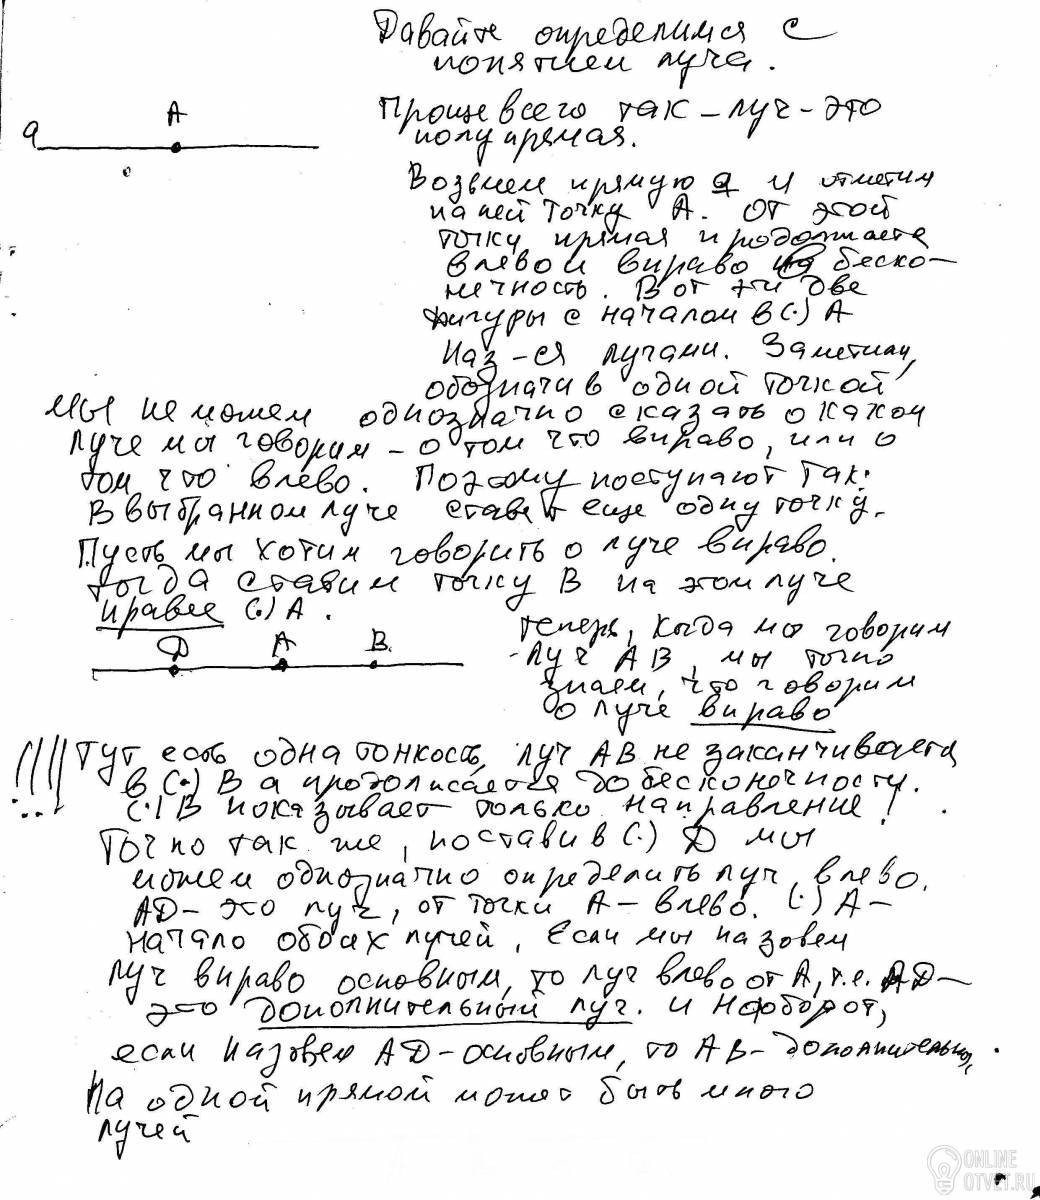 Давайте определимся с
понятием луча.
Проще всего так – луч – это
полупрямая.
a
A
Возьмем прямую a и отметим
на ней точку A. От этой
точку прямая продолжается
влево и вправо на беско-
нечность. Вот эти две
фигуры с началом в (.) A
наз-ся лучами. Заметим,
обозначив одной точкой
мы не можем однозначно сказать о каком
луче мы говорим – о том что вправо, или о
том что влево. Поэтому поступают так:
В выбранном луче ставят еще одну точку.
Пусть мы хотим говорить о луче вправо.
Тогда ставим точку B на этом луче
правее (.) A.
D A B
Теперь, когда мы говорим
луч AB, мы точно
знаем, что говорим
о луче вправо
!!!! Тут есть одна тонкость, луч AB не заканчивается
в (.) B а продолжается до бесконечности.
(.) B показывает только направление!
Точно так же, поставив (.) D мы
можем однозначно определить луч влево.
AD – это луч, от точки A – влево. (.) A –
начало обоих лучей, Если мы назовем
луч вправо основным, то луч влево от A, т.е. AD –
это дополнительный луч. и наоборот,
если назовем AD – основным, то AB – дополнительный.
На одной прямой может быть много
лучей
ONLINE
OTVET.RU